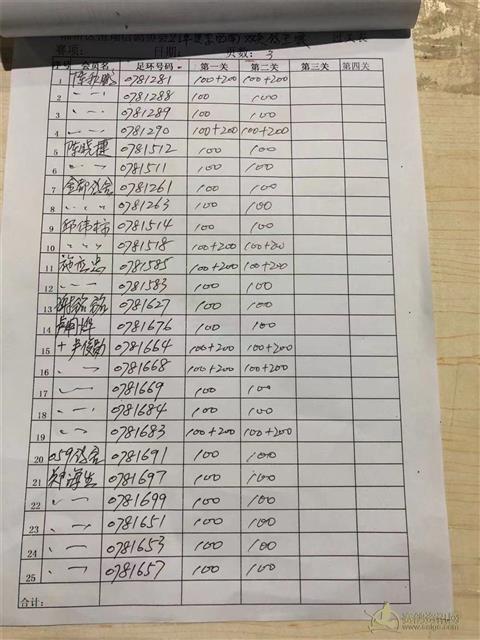 赛项: 日期: 页数: 3
序号 会员名 足环号码 第一关 第二关 第三关 第四关
1 0781281 100+200 100+200
2 〃 0781288 100 100
3 〃 0781289 100 100
4 〃 0781290 100+200 100+200
5 陈晓捷 0781512 100 100
6 〃 0781511 100 100
7 0781261 100 100
8 〃 0781263 100 100
9 邱伟栋 0781514 100 100
10 〃 0781518 100+200 100+200
11 0781585 100+200 100+200
12 〃 0781583 100 100
13 0781627 100 100
14 0781676 100 100
15 0781664 100+200 100+200
16 〃 0781668 100+200 100+200
17 〃 0781669 100 100
18 〃 0781684 100 100
19 〃 0781683 100+200 100+200
20 059鸽舍 0781691 100 100
21 0781697 100 100
22 〃 0781699 100 100
23 〃 0781651 100 100
24 〃 0781653 100 100
25 〃 0781657 100 100
合计: